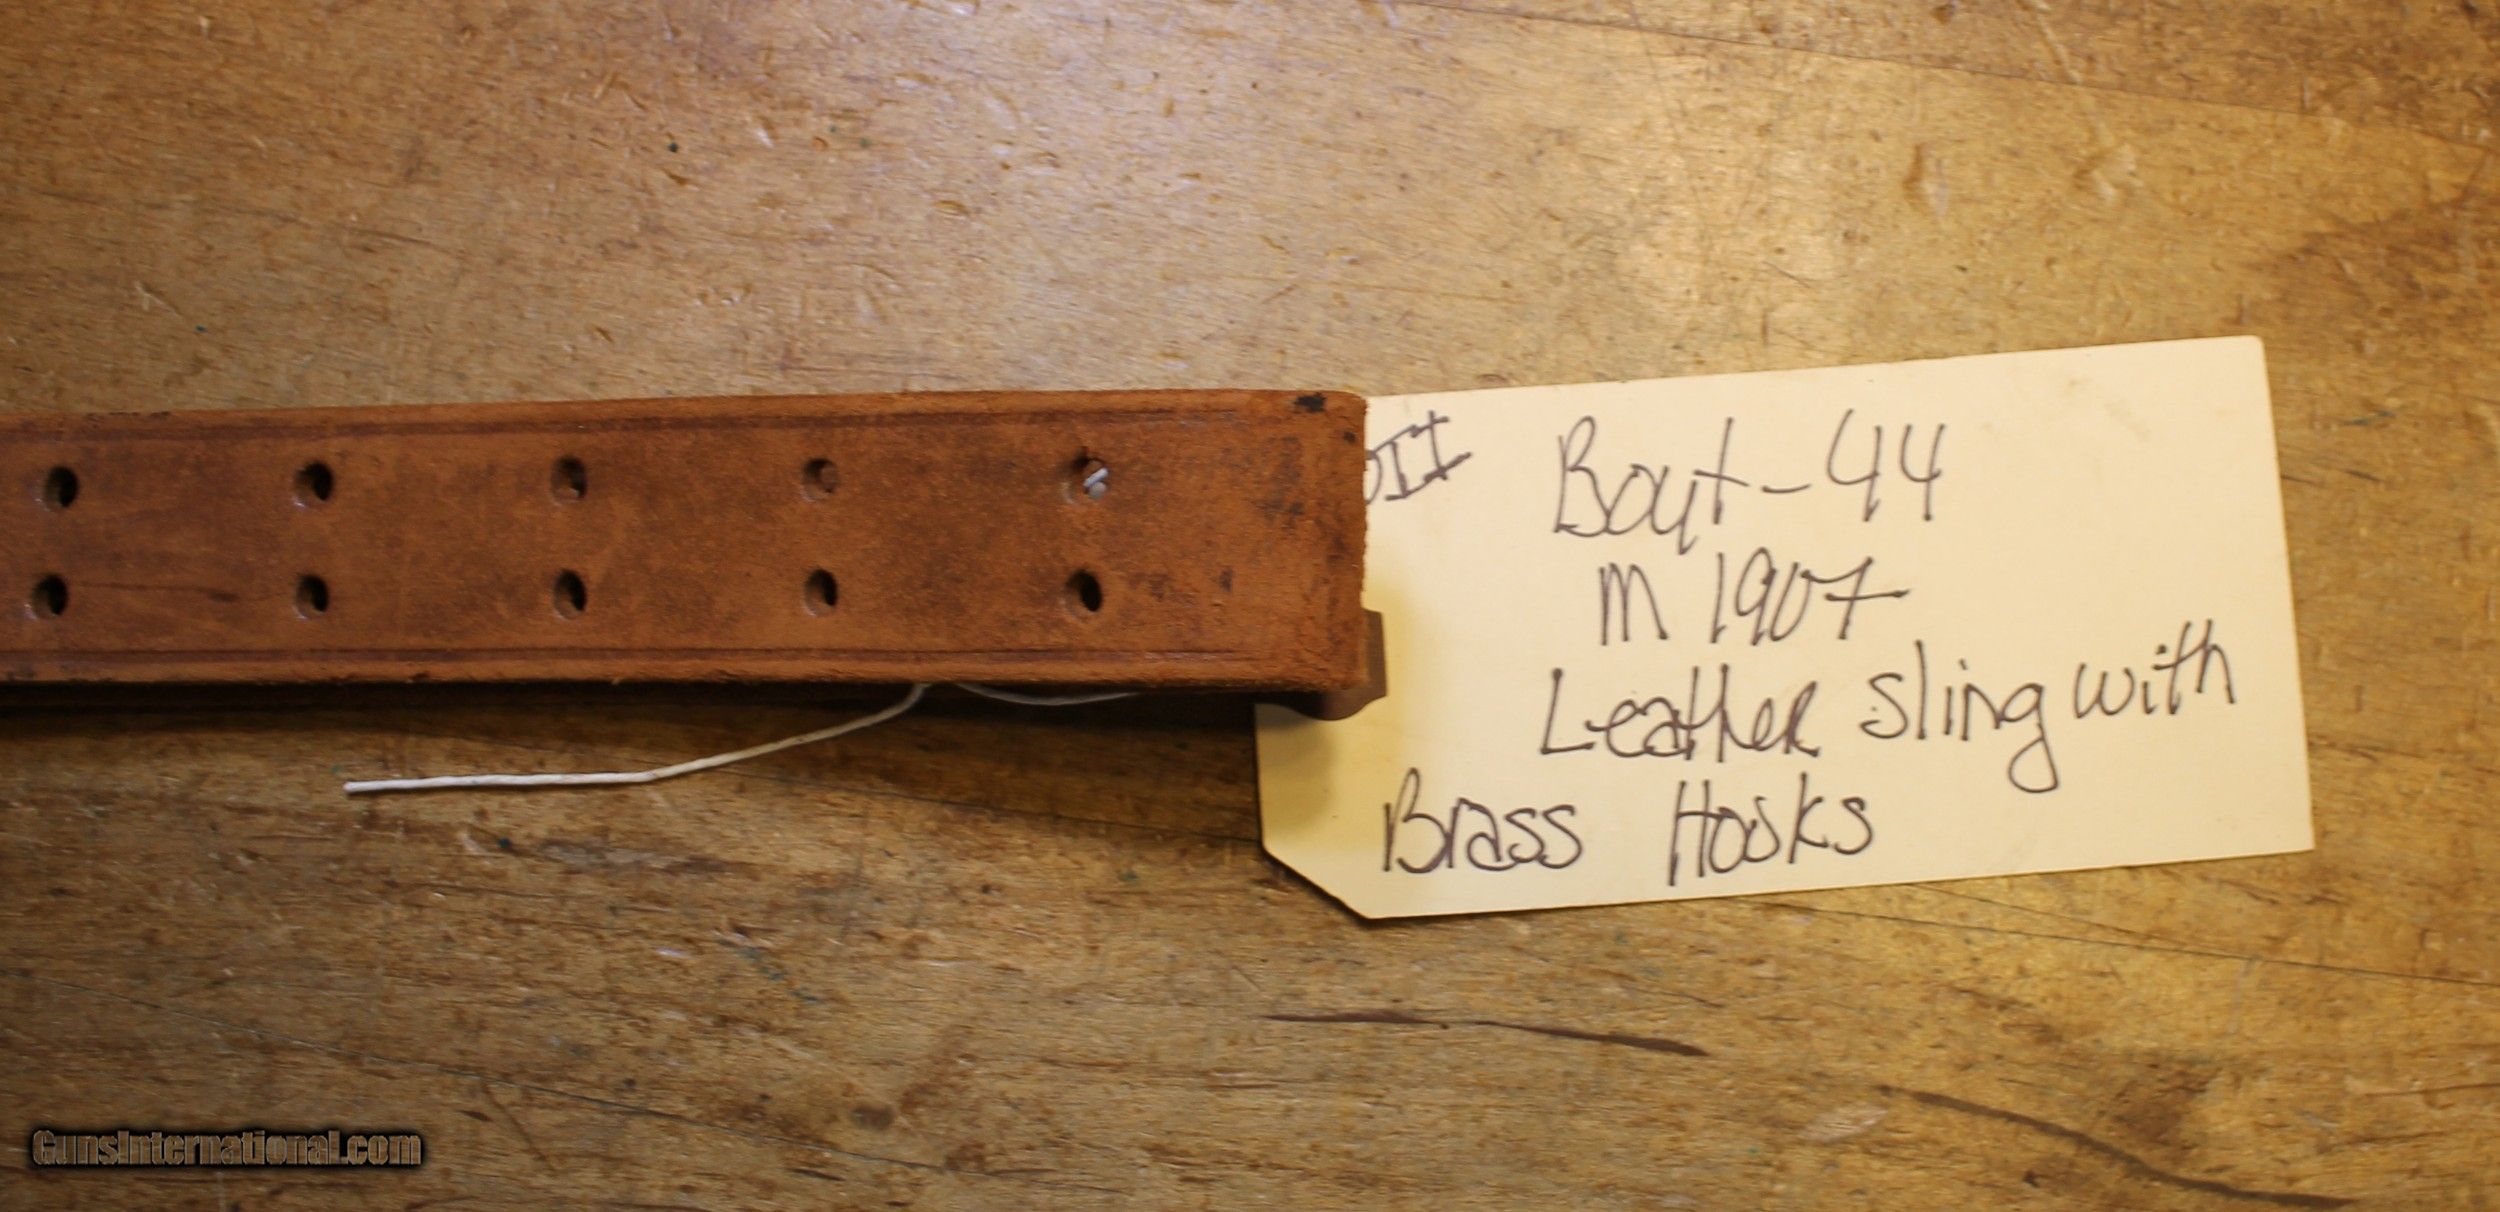 Boyt-44
M 1907
Leather Sling with
Brass Hooks
GunsInternational.com